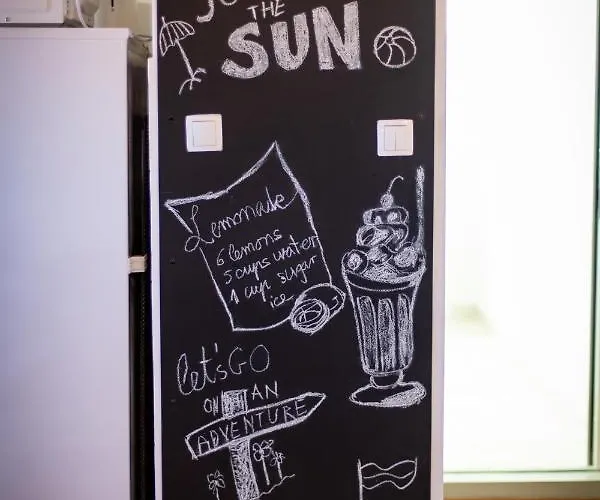 THE
SUN
Lemonade
6 lemons
5 cups water
1 cup sugar
ice
let's GO
ON AN
ADVENTURE